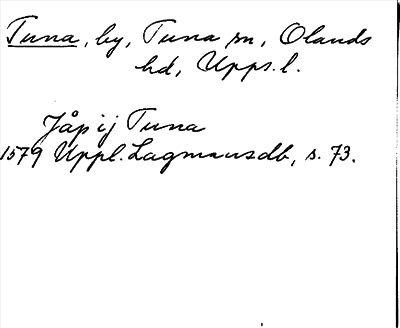 Tuna, by, Tuna sn, Olands
hd, Upps. l.
Jåp ij Tuna
1579 Uppl. Lagmansdb, s. 73.